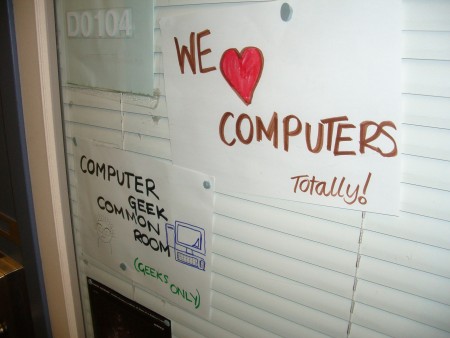 D0104
WE
COMPUTERS
Totally!
COMPUTER
GEEK
COMMON
ROOM
(GEEKS ONLY)